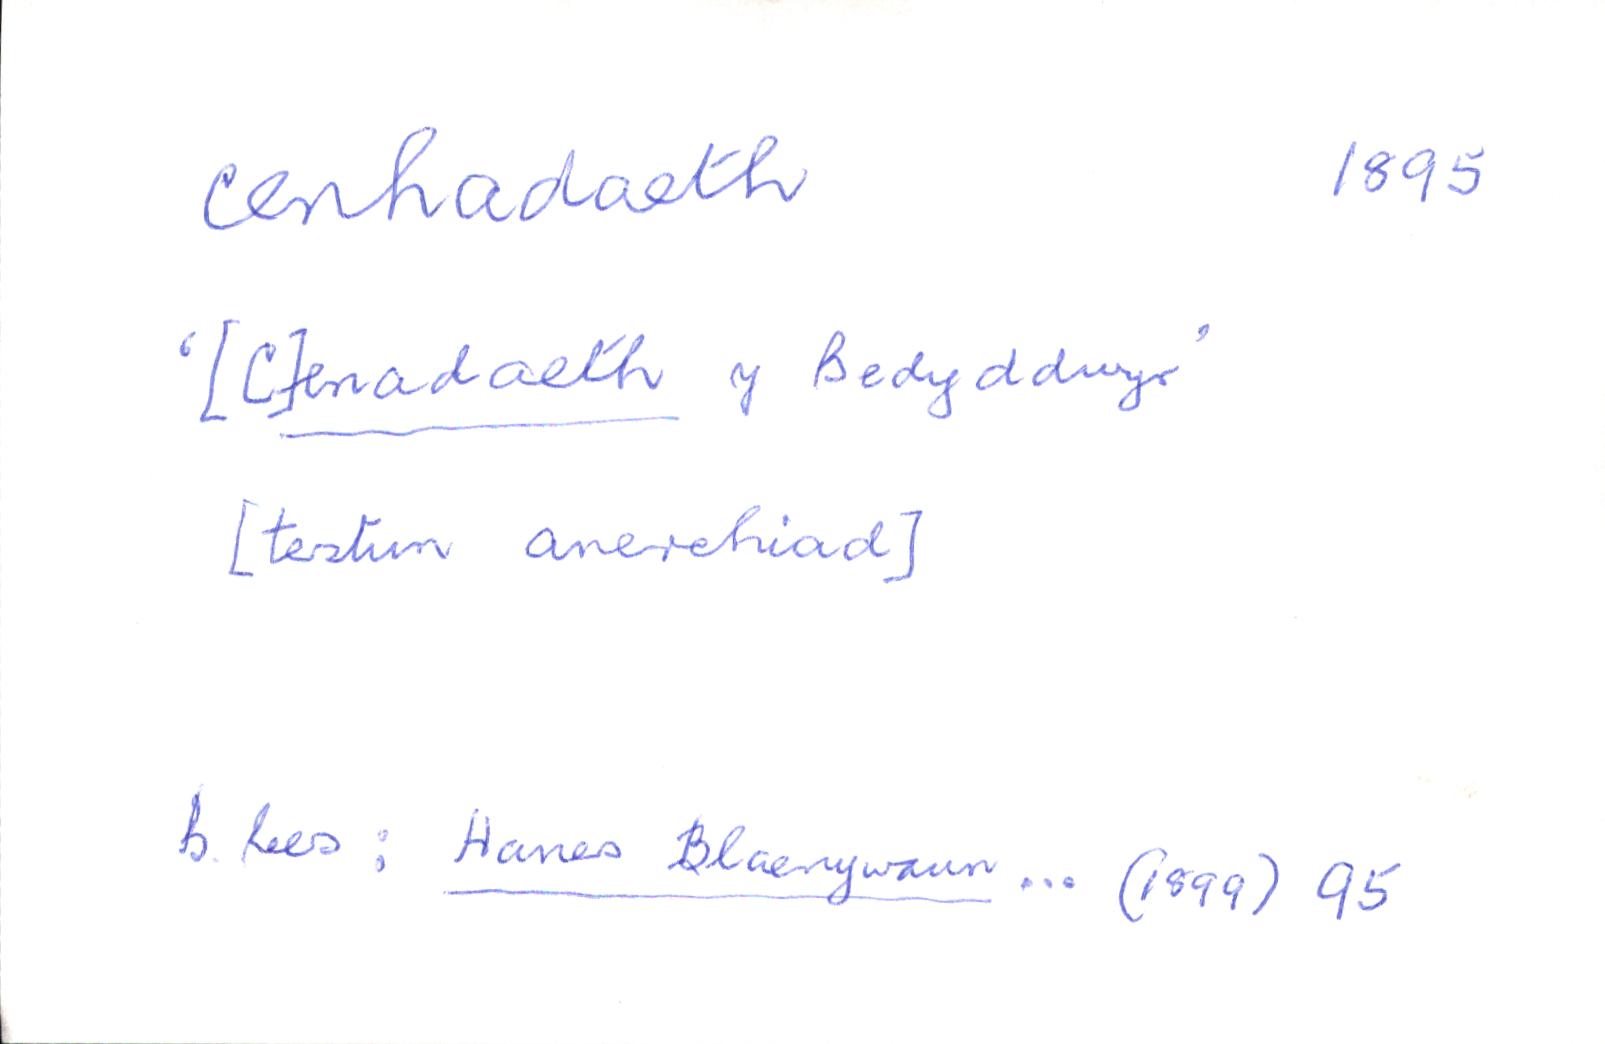 cenhadaeth 1895
'[C]enadaeth y Bedyddwyr'
[testun anerchiad]
B. Rees: Hanes Blaenywaun ... (1899) 95